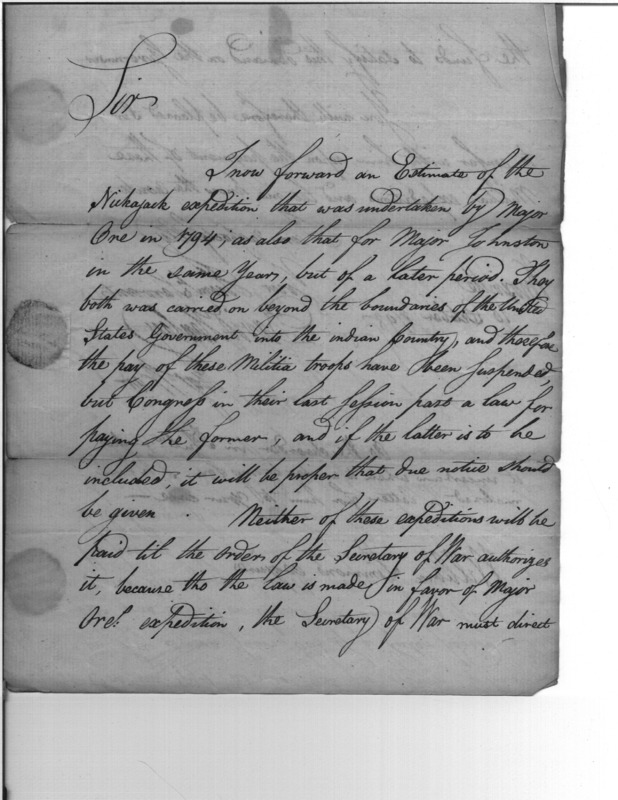 Sir
I now forward an Estimate of the
Nickajack expedition that was undertaken by Major
Ore in 1794, as also that for Major Johnston
in the same Year, but of a later period. They
both was carried on beyond the boundaries of the United
States Government into the indian Country, and therefore
the pay of these Militia troops have been suspended,
but Congress in their last Session past a law for
paying the former, and if the latter is to be
included, it will be proper that due notice should
be given. Neither of these expeditions will be
paid til the orders of the Secretary of War authorizes
it, because tho the law is made in favor of Major
Ores expedition, the Secretary of War must direct